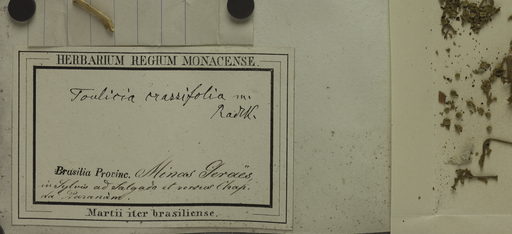 HERBARIUM REGIUM MONACENSE.
Toulicia crassifolia m.
Radlk.
Brasilia Provinc. Minas Geraës
in Sylvis ad Salgado et versus Chap.
da Paranán.
Martii iter brasiliense.